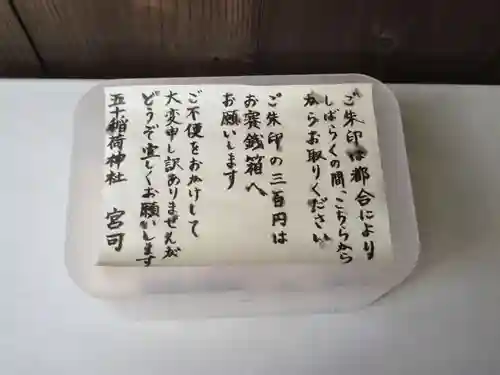 ご朱印は都合により
しばらくの間、こちらから
からお取りください
ご朱印の三百円は
お賽銭箱へ
お願いします
ご不便をおかけして
大変申し訳ありませんが
どうぞ宜しくお願いします
五十稲荷神社　宮司